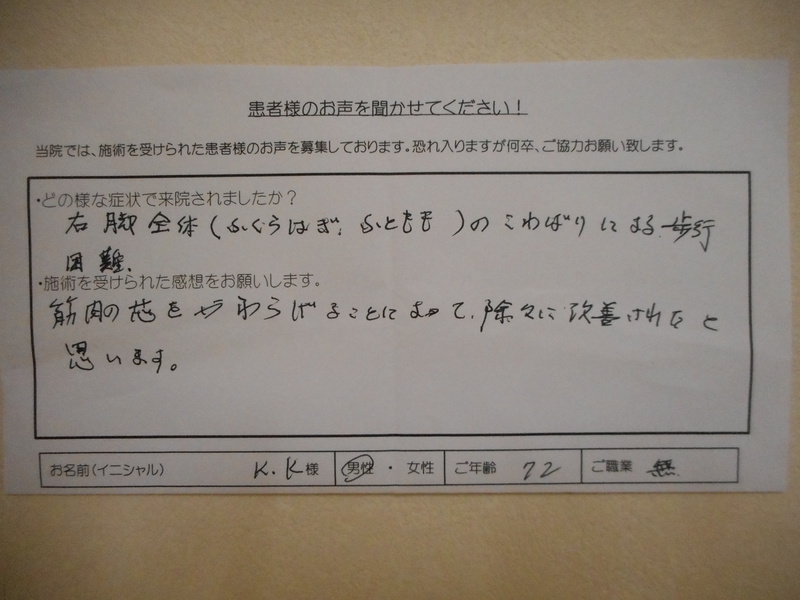 患者様のお声を聞かせてください！
当院では、施術を受けられた患者様のお声を募集しております。恐れ入りますが何卒、ご協力お願い致します。
・どの様な症状で来院されましたか？
右脚全体(ふくらはぎ、ふともも)のこわばりによる歩行
困難、
・施術を受けられた感想をお願いします。
筋肉の芯をやわらげることによって、除々に改善されたと
思います。
お名前(イニシャル) K.K様 男性・女性 ご年齢 72 ご職業 無